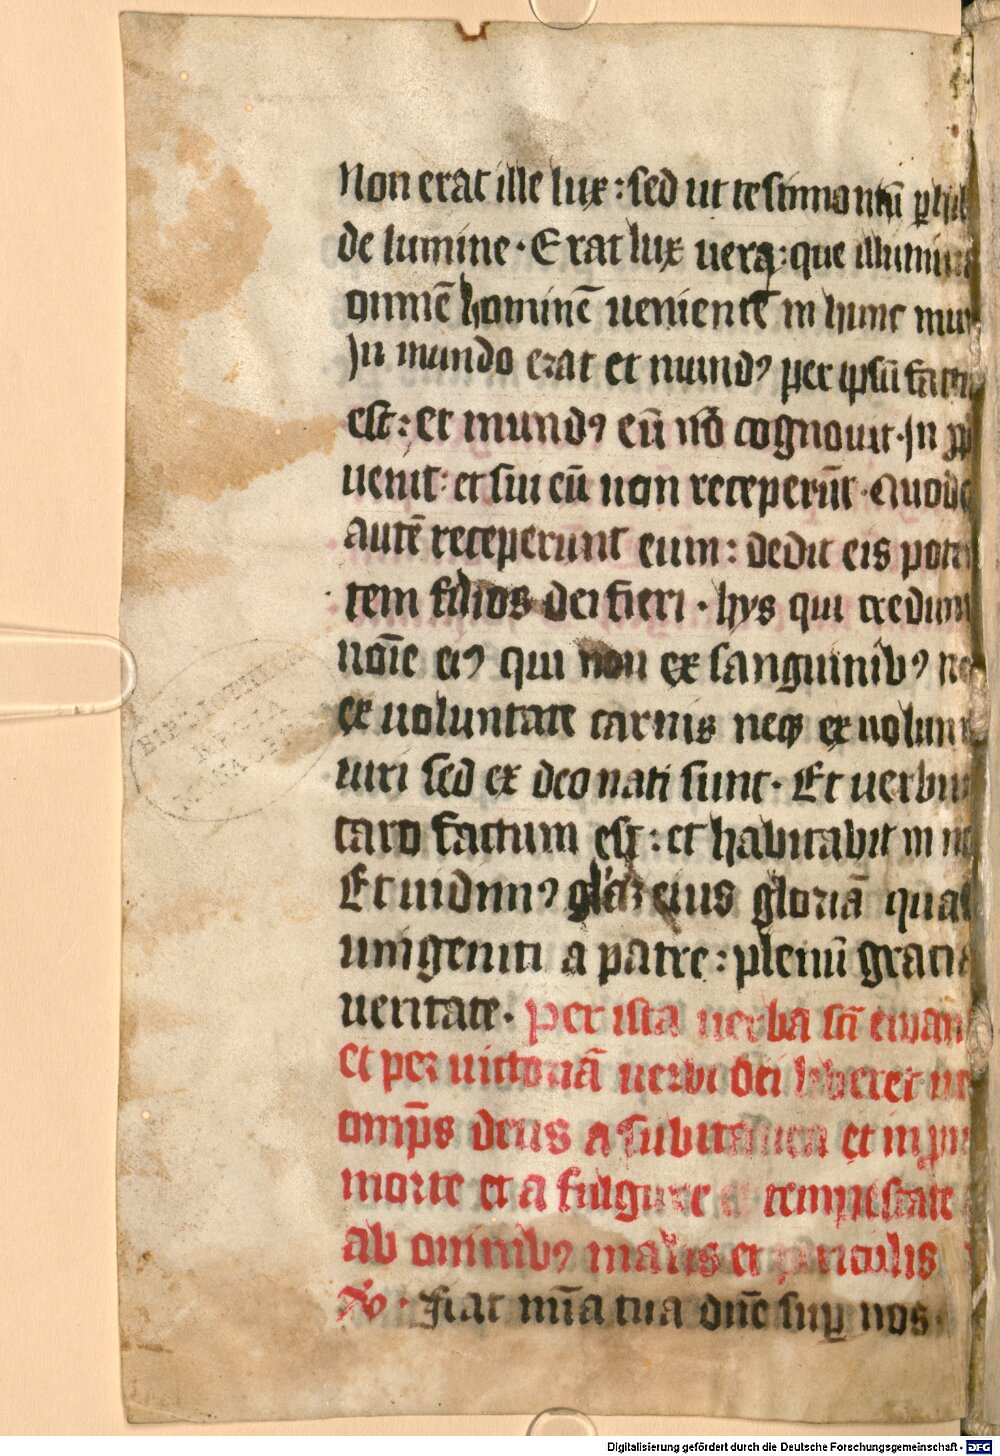 Non erat ille lux : sed ut testimoniū
de lumine · Erat lux vera : que
omnē hominē uenientē in hunc
In mundo erat et mundꝰ per ipsū
est : et mundꝰ eū nō cognouit · In
uenit : et sui eū non receperūt ·
autē receperunt eum : dedit eis
tem filios dei fieri · hys qui
noīe eiꝰ qui non ex sanguinibꝰ
ex uoluntate carnis neqꝫ ex
uiri sed ex deo nati sunt · Et
caro factum est : et habitabit in
Et uidimꝰ eius gloriā
unigeniti a patre : plenū
ueritate · Per ista uerba sc̄i
et per uictoriā uerbi dei liberet
omp̄s deus a subitanea et
morte et a fulgure et tempestate
ab omnibꝰ malis et periculis
Fiat mīa tua dn̄e suꝑ nos ·
Digitalisierung gefördert durch die Deutsche Forschungsgemeinschaft - DFG